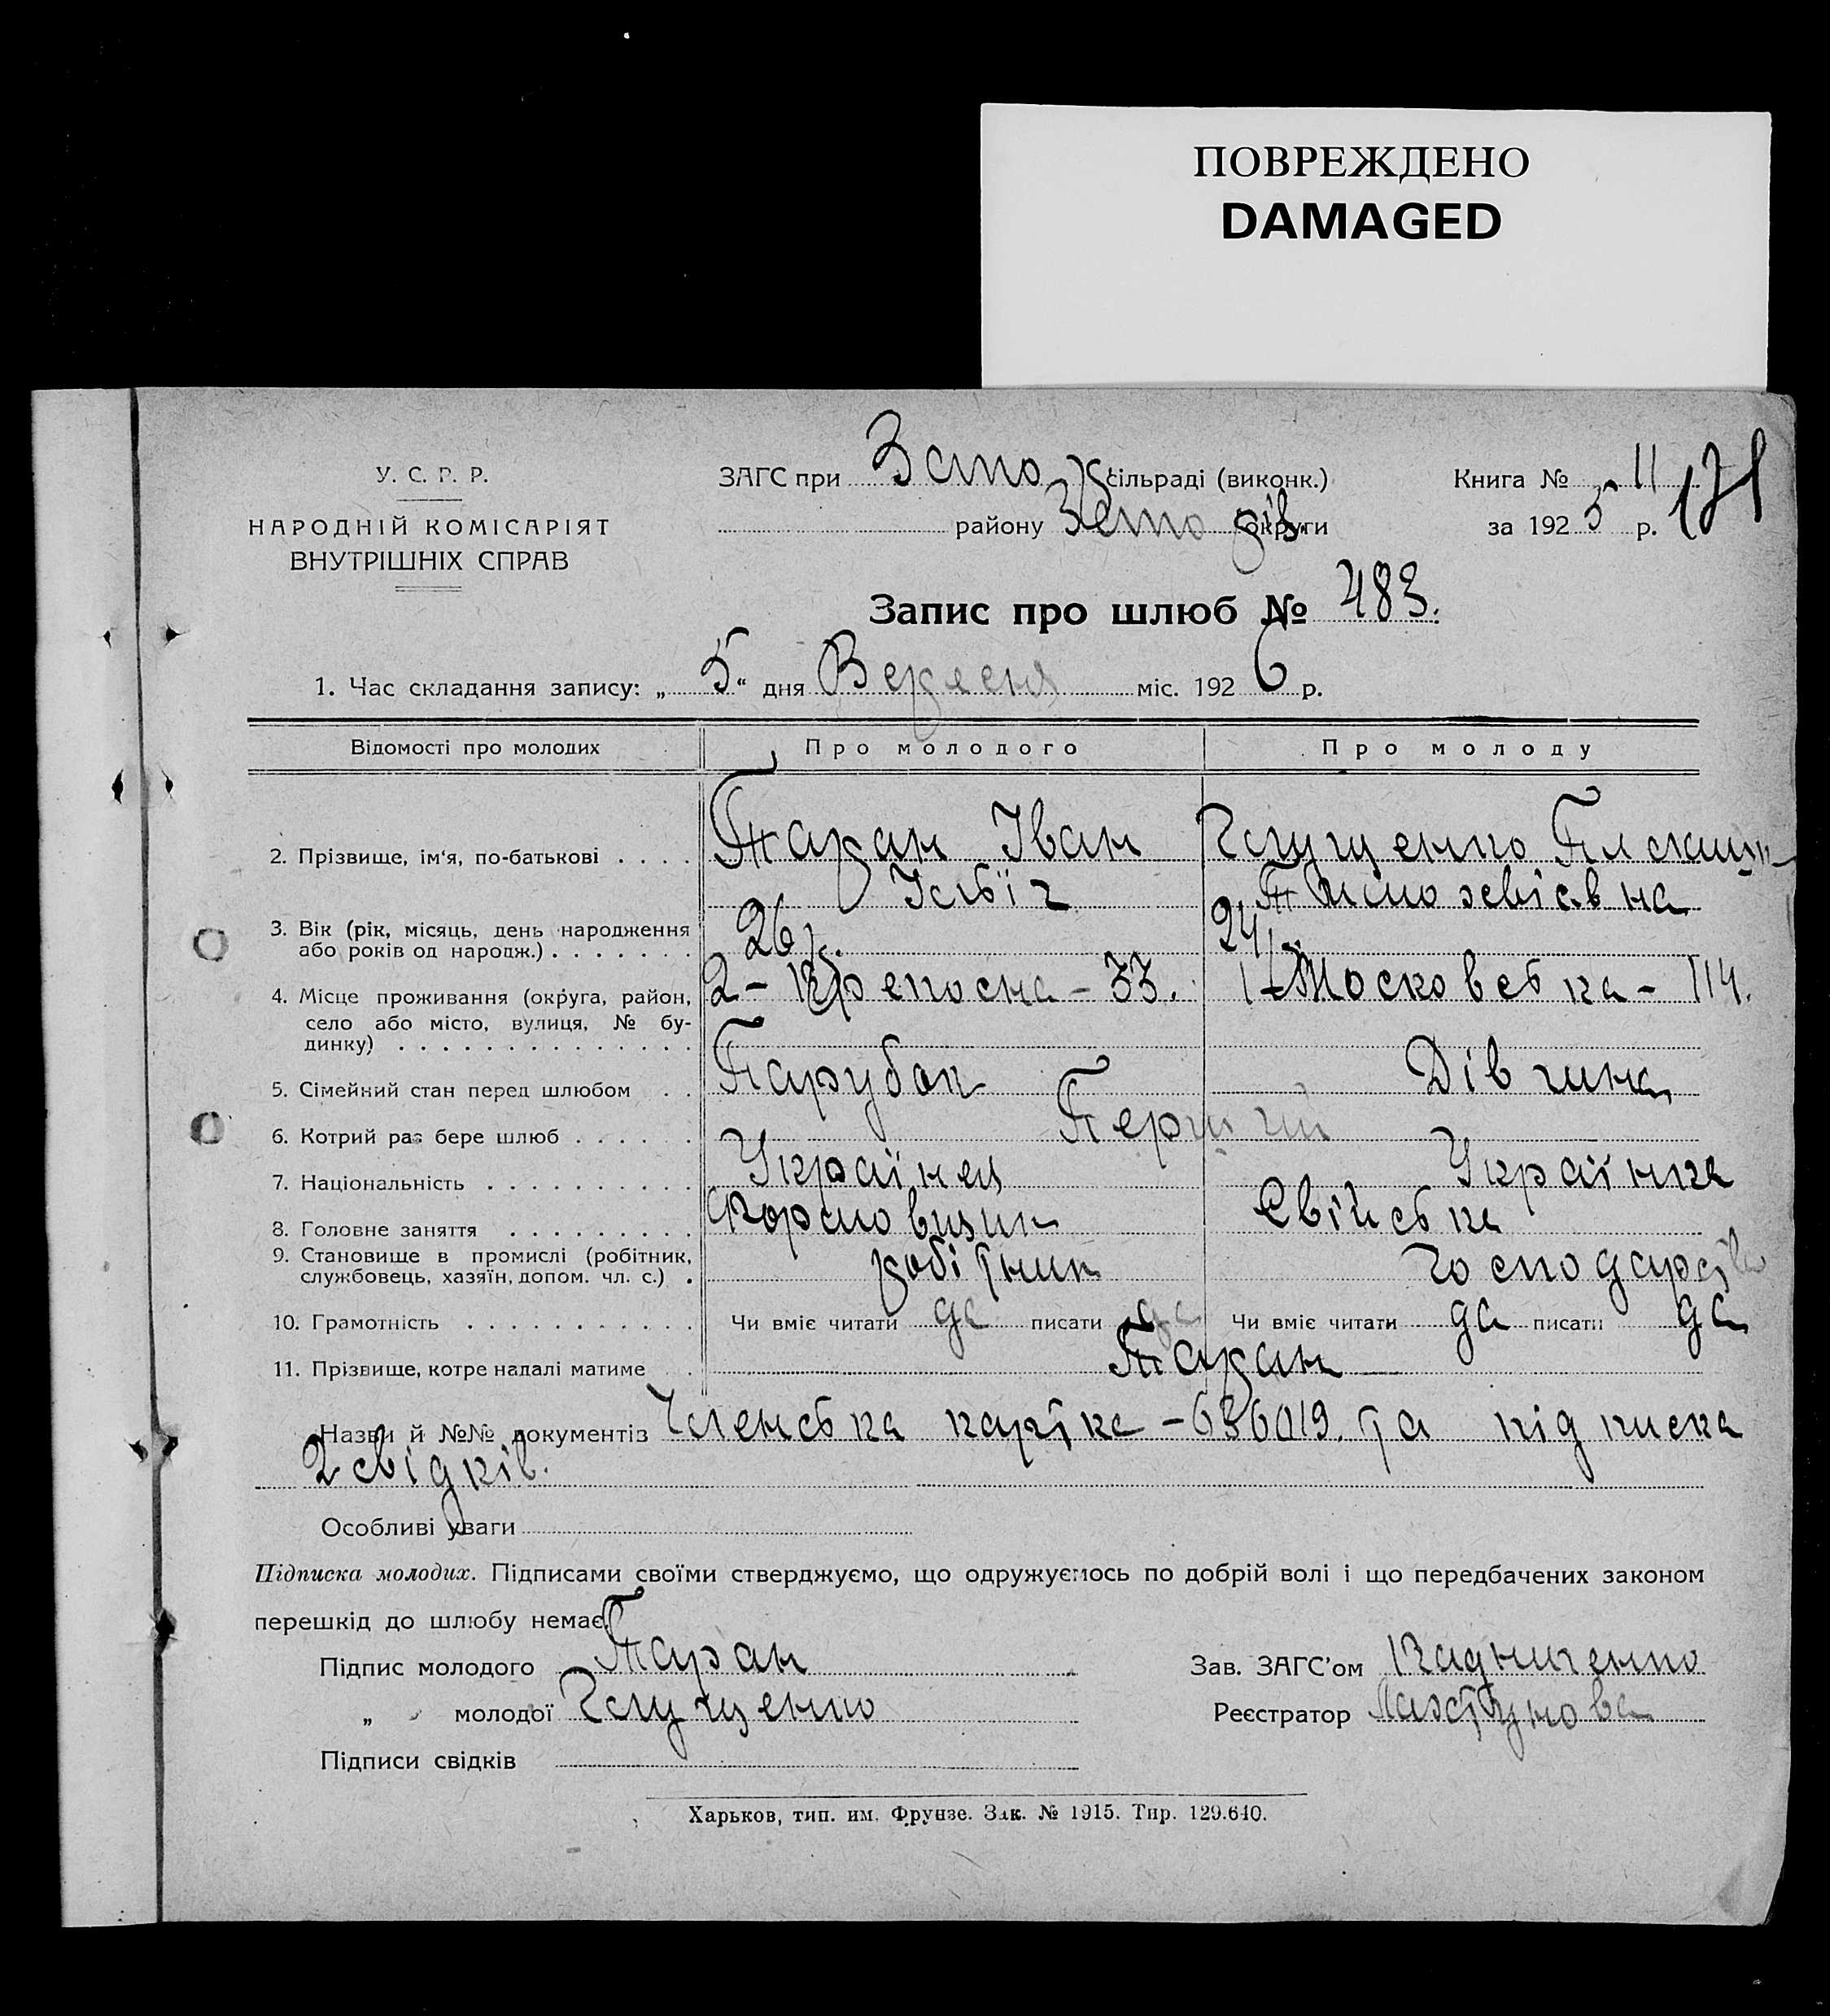 ПОВРЕЖДЕНО
DAMAGED
У. С. Р. Р.
НАРОДНІЙ КОМІСАРІЯТ
ВНУТРІШНІХ СПРАВ
ЗАГС при сільраді (виконк.)
району округи
Книга № 11
за 1925 р. 171
Запис про шлюб № 483.
1. Час складання запису: „ 5 “ дня Вересня міс. 1926 р.
Відомості про молодих Про молодого Про молоду
2. Прізвище, ім‘я, по-батькові . . . . Таран Іван Глущенко
3. Вік (рік, місяць, день народження або років од народж.) . . . . . . . 26 р. 24 р.
4. Місце проживання (округа, район, село або місто, вулиця, № будинку) . . . . . . . . . . . . . . 2- Крепосна - 33. Московська - 114.
5. Сімейний стан перед шлюбом . . Парубок Дівчина
6. Котрий раз бере шлюб . . . . . . Перший
7. Національність . . . . . . . . . . Українец Українка
8. Головне заняття . . . . . . . . . Формовщик Свійська
9. Становище в промислі (робітник, службовець, хазяїн, допом. чл. с.) . робітник господарство
10. Грамотність . . . . . . . . . . . Чи вміє читати да писати да Чи вміє читати да писати да
11. Прізвище, котре надалі матиме . . Таран
Назви й №№ документів Членська картка - 636019. та підписка
2 свідків.
Особливі уваги
Підписка молодих. Підписами своїми стверджуємо, що одружуємось по добрій волі і що передбачених законом
перешкід до шлюбу немає.
Підпис молодого Таран Зав. ЗАГС’ом
„ молодої Глущенко Реєстратор
Підписи свідків
Харьков, тип. им. Фрунзе. Зак. № 1915. Тир. 129.640.